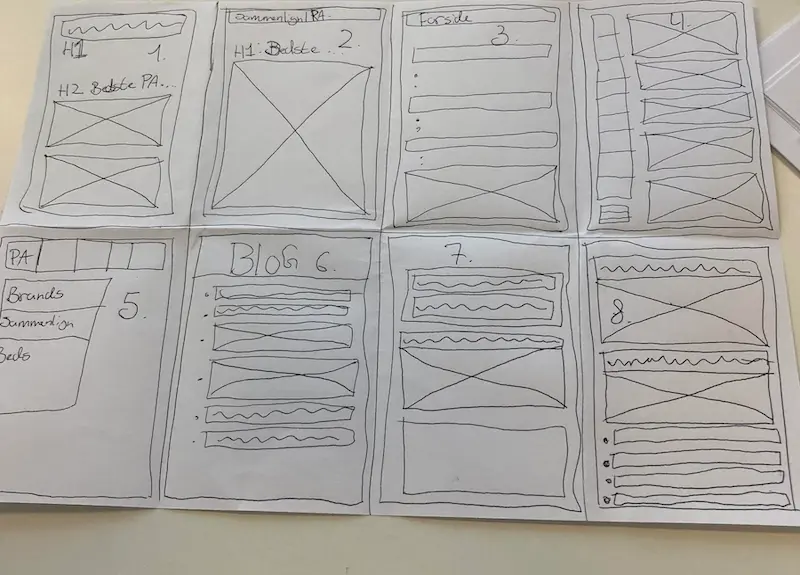 H1
1.
H2 Bedste PA...
Sammenlign PA.
H1: Bedste ...
2
Forside
3.
4.
PA
Brands
Sammenlign
5.
BLOG 6.
7.
8.